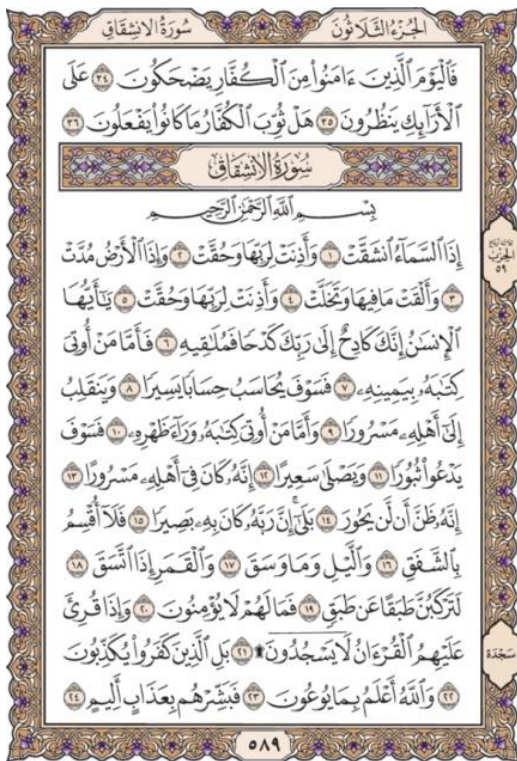 سُورَةُ الانشِقَاقِ
الجُزْءُ الثَّلَاثُونَ
فَالْيَوْمَ الَّذِينَ ءَامَنُوا۟ مِنَ الْكُفَّارِ يَضْحَكُونَ ٣٤ عَلَى
الْأَرَآئِكِ يَنظُرُونَ ٣٥ هَلْ ثُوِّبَ الْكُفَّارُ مَا كَانُوا۟ يَفْعَلُونَ ٣٦
سُورَةُ الانشِقَاقِ
بِسْمِ اللَّهِ الرَّحْمَٰنِ الرَّحِيمِ
إِذَا السَّمَآءُ انشَقَّتْ ١ وَأَذِنَتْ لِرَبِّهَا وَحُقَّتْ ٢ وَإِذَا الْأَرْضُ مُدَّتْ
٣ وَأَلْقَتْ مَا فِيهَا وَتَخَلَّتْ ٤ وَأَذِنَتْ لِرَبِّهَا وَحُقَّتْ ٥ يَٰٓأَيُّهَا
الْإِنسَٰنُ إِنَّكَ كَادِحٌ إِلَىٰ رَبِّكَ كَدْحًا فَمُلَٰقِيهِ ٦ فَأَمَّا مَنْ أُوتِىَ
كِتَٰبَهُۥ بِيَمِينِهِۦ ٧ فَسَوْفَ يُحَاسَبُ حِسَابًا يَسِيرًا ٨ وَيَنقَلِبُ
إِلَىٰٓ أَهْلِهِۦ مَسْرُورًا ٩ وَأَمَّا مَنْ أُوتِىَ كِتَٰبَهُۥ وَرَآءَ ظَهْرِهِۦ ١٠ فَسَوْفَ
يَدْعُوا۟ ثُبُورًا ١١ وَيَصْلَىٰ سَعِيرًا ١٢ إِنَّهُۥ كَانَ فِىٓ أَهْلِهِۦ مَسْرُورًا ١٣
إِنَّهُۥ ظَنَّ أَن لَّن يَحُورَ ١٤ بَلَىٰٓ إِنَّ رَبَّهُۥ كَانَ بِهِۦ بَصِيرًا ١٥ فَلَآ أُقْسِمُ
بِالشَّفَقِ ١٦ وَالَّيْلِ وَمَا وَسَقَ ١٧ وَالْقَمَرِ إِذَا اتَّسَقَ ١٨
لَتَرْكَبُنَّ طَبَقًا عَن طَبَقٍ ١٩ فَمَا لَهُمْ لَا يُؤْمِنُونَ ٢٠ وَإِذَا قُرِئَ
عَلَيْهِمُ الْقُرْءَانُ لَا يَسْجُدُونَ ۩ ٢١ بَلِ الَّذِينَ كَفَرُوا۟ يُكَذِّبُونَ
٢٢ وَاللَّهُ أَعْلَمُ بِمَا يُوعُونَ ٢٣ فَبَشِّرْهُم بِعَذَابٍ أَلِيمٍ ٢٤
الحِزْب
٥٩
سَجْدَة
٥٨٩